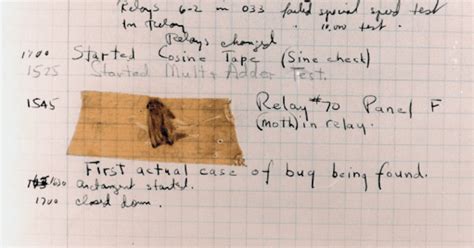 Relays 6-2 in 033 failed special speed test
In Relay " 10,000 test.
Relays changed
1700 Started Cosine Tape (Sine check)
1525 Started Mult+ Adder Test.
1545 Relay #70 Panel F
(moth) in relay.
First actual case of bug being found.
1630 antangent started.
1700 closed down.